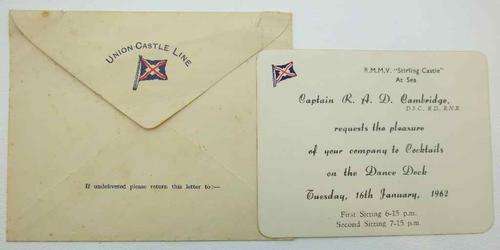 UNION-CASTLE LINE
If undelivered please return this letter to:—
R.M.M.V. "Stirling Castle"
At Sea
Captain R. A. D. Cambridge,
D.S.C., R.D., R.N.R.
requests the pleasure
of your company to Cocktails
on the Dance Deck
Tuesday, 16th January, 1962
First Sitting 6-15 p.m.
Second Sitting 7-15 p.m.